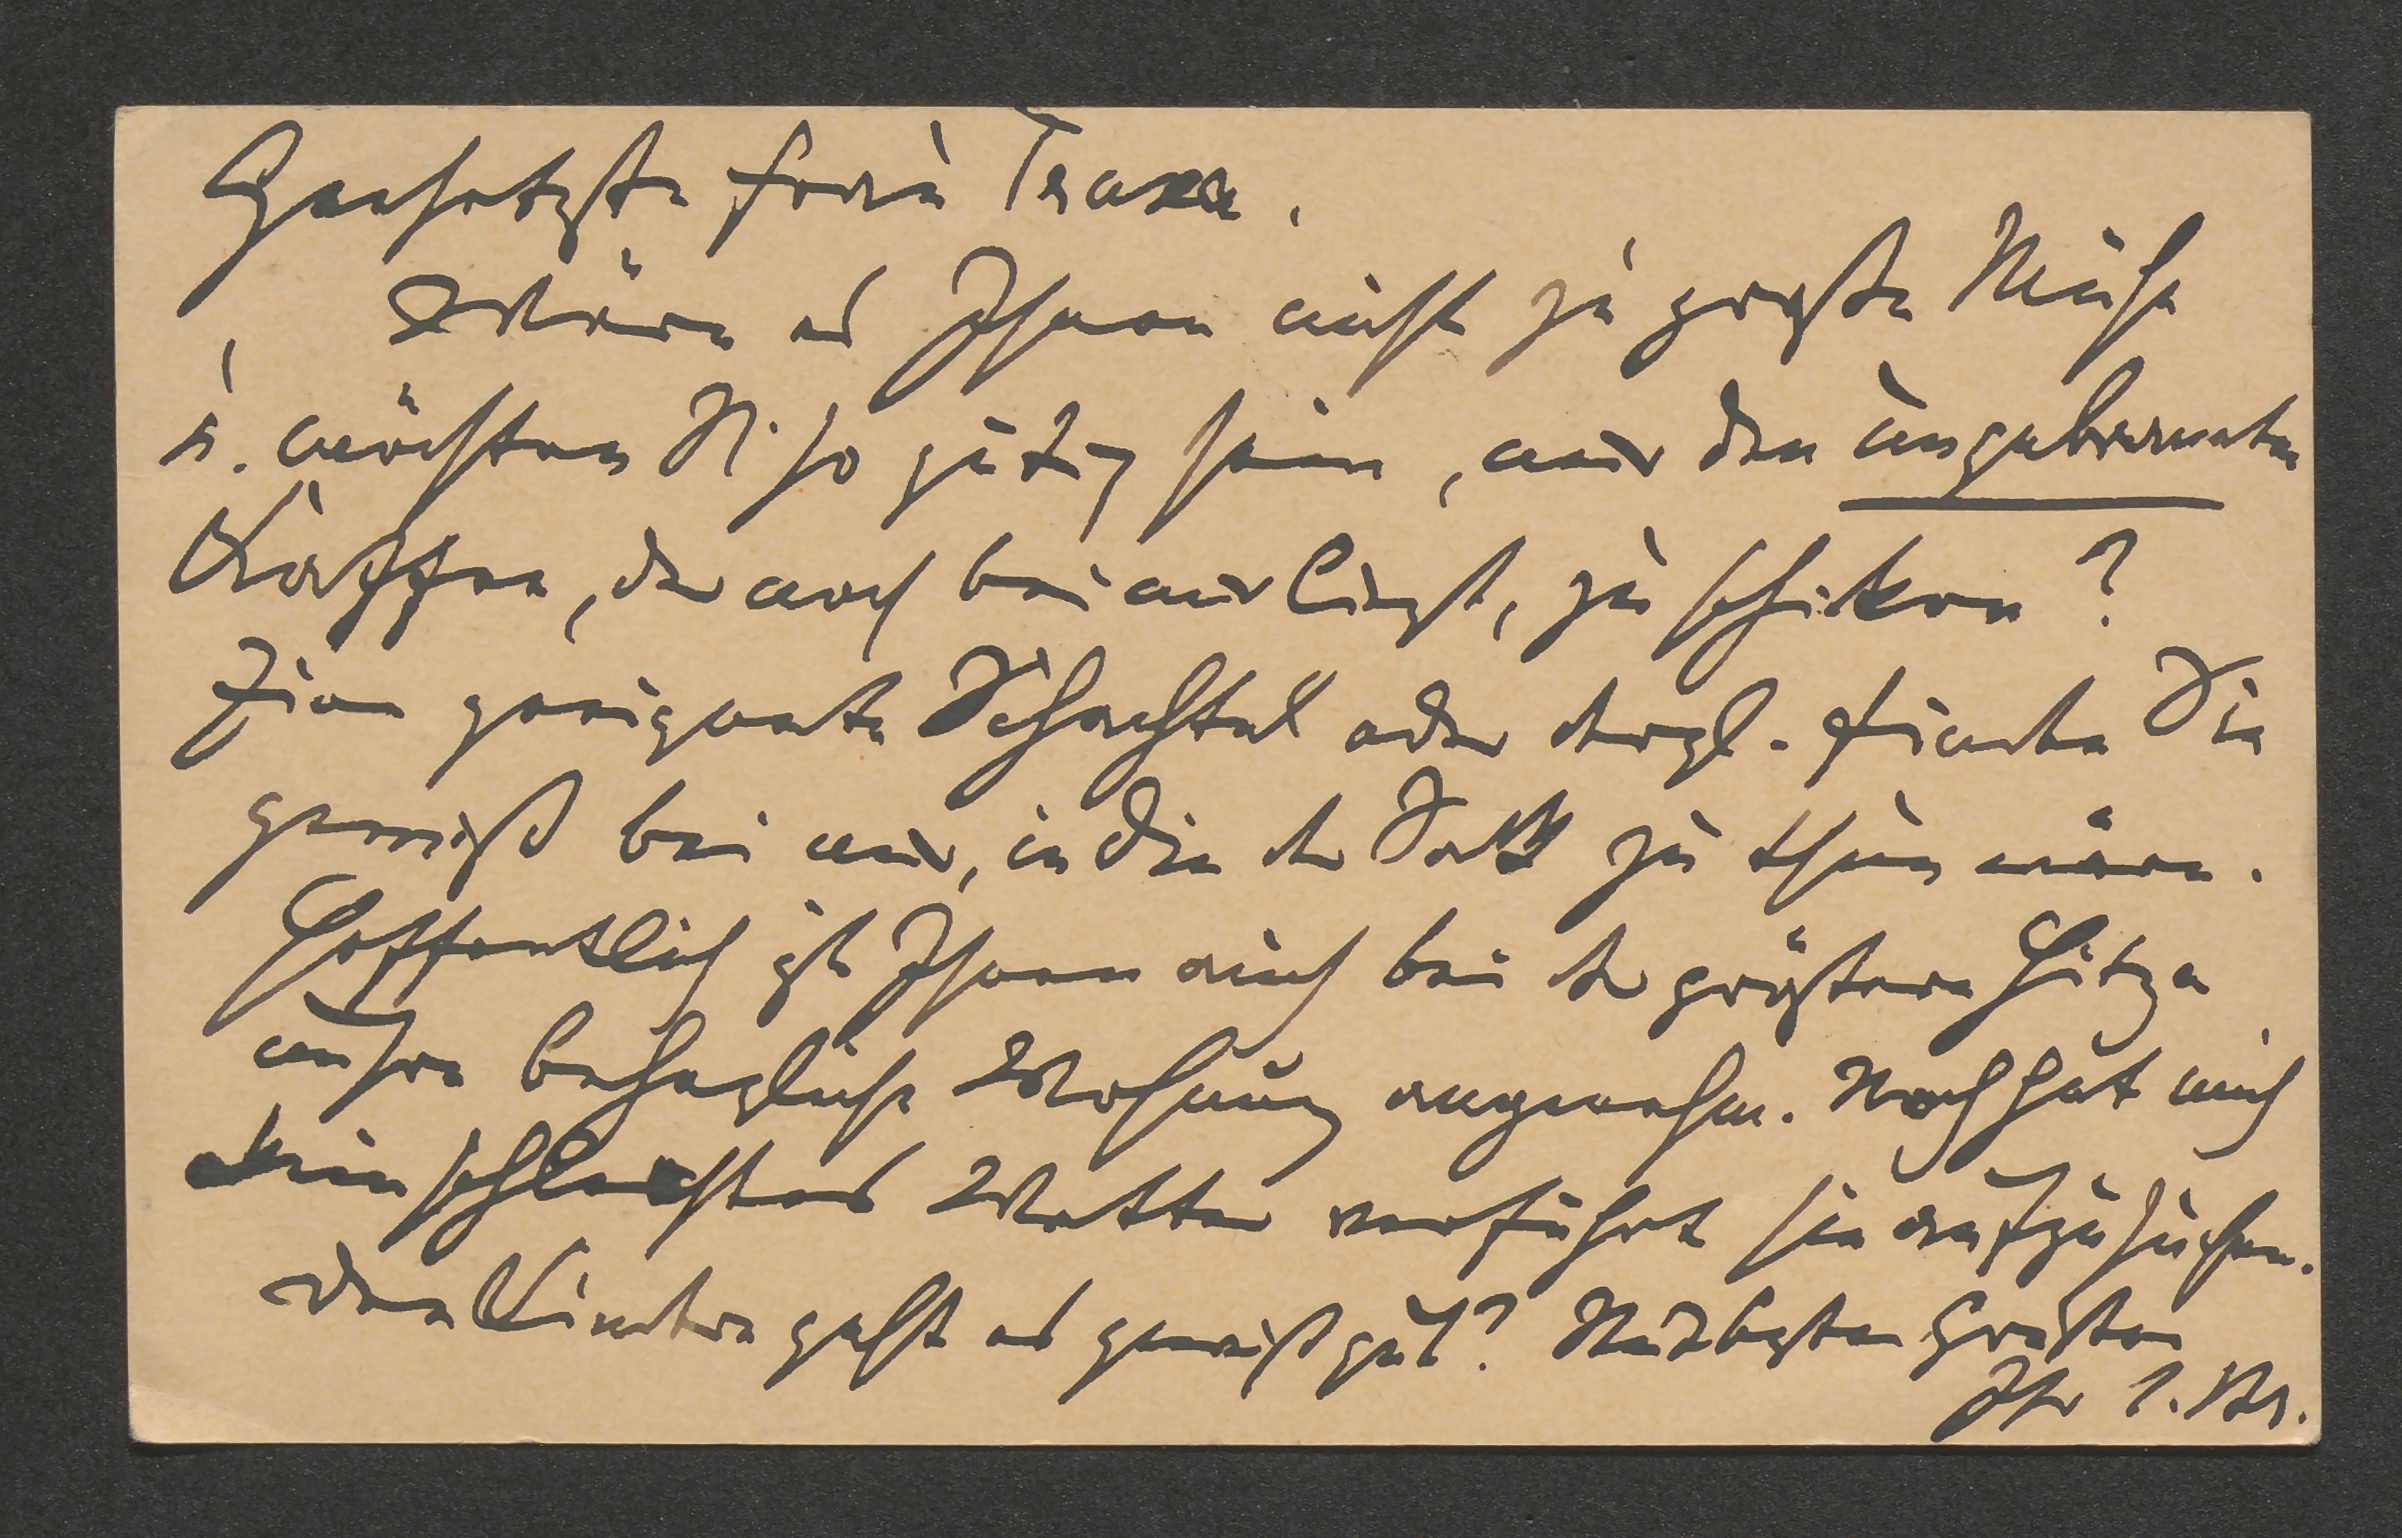 Geehrteste Frau Truxa.
Wäre es Ihnen nicht zu große Mühe
u. möchten Sie so gütig sein, mir den ungebrannten
Kaffee, der noch bei mir liegt, zu schicken?
Eine geeignete Schachtel oder dergl. finden Sie
gewiß bei mir, in die der Sack zu thun wäre.
Hoffentlich ist Ihnen auch bei der größten Hitze
unsre behagliche Wohnung angenehm. Noch hat mich
kein schlechtes Wetter verführt sie aufzusuchen.
Den Kindern geht es gewiß gut? Mit besten Grüßen
Ihr J. Br.